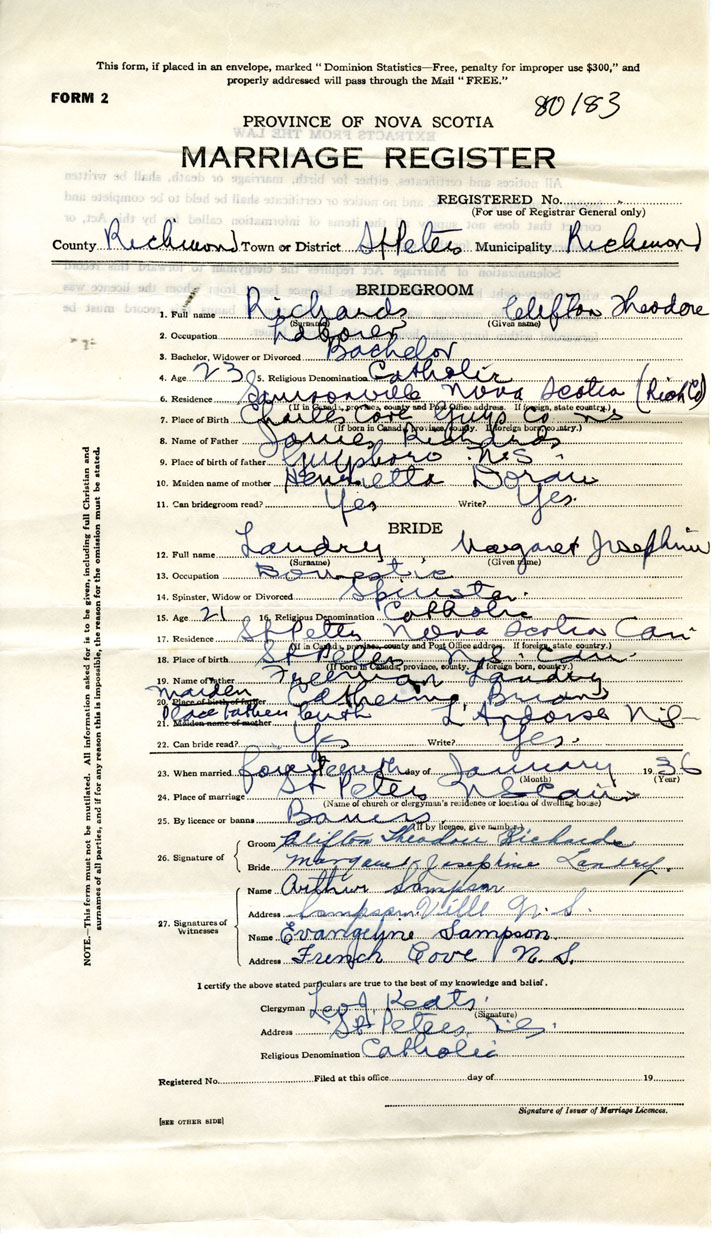 This form, if placed in an envelope, marked "Dominion Statistics—Free, penalty for improper use $300," and
properly addressed will pass through the Mail "FREE."
FORM 2
80183
PROVINCE OF NOVA SCOTIA
MARRIAGE REGISTER
REGISTERED No.
(For use of Registrar General only)
County Richmond Town or District St Peters Municipality Richmond
BRIDEGROOM
1. Full name Richards Clifton Theodore
(Surname) (Given name)
2. Occupation Laborer
3. Bachelor, Widower or Divorced Bachelor
4. Age 23 5. Religious Denomination Catholic
6. Residence Sampsonville Nova Scotia (Rich Co)
(If in Canada, province, county and Post Office address. If foreign, state country.)
7. Place of Birth Charles Cove Guys Co NS
(If born in Canada, province, county. If foreign born, country.)
8. Name of Father James Richards
9. Place of birth of father Guysboro N.S.
10. Maiden name of mother Henrietta Doran
11. Can bridegroom read? Yes Write? Yes.
BRIDE
12. Full name Landry Margaret Josephine
(Surname) (Given name)
13. Occupation Domestic
14. Spinster, Widow or Divorced Spinster
15. Age 21 16. Religious Denomination Catholic
17. Residence St Peters Nova Scotia Can
(If in Canada, province, county and Post Office address. If foreign, state country.)
18. Place of birth St Peters N.S. Can.
(If born in Canada, province, county, if foreign born, country.)
19. Name of father Freeman Landry
Maiden
20. Place of birth of father Catherine
Place fathers birth
21. Maiden name of mother L'Ardoise N.S.
22. Can bride read? Yes Write? Yes.
23. When married fourteenth day of January 1936
(Month) (Year)
24. Place of marriage St Peters NS Can
(Name of church or clergyman's residence or location of dwelling house)
25. By licence or banns Banns
(If by licence, give number)
26. Signature of
Groom Clifton Theodore Richards
Bride Margaret Josephine Landry.
27. Signatures of Witnesses
Name Arthur Sampson
Address SampsonVille N.S.
Name Evangelyne Sampson
Address French Cove N.S.
I certify the above stated particulars are true to the best of my knowledge and belief.
Clergyman Leo J. Keats.
(Signature)
Address St Peters N.S.
Religious Denomination Catholic
Registered No. Filed at this office day of 19
Signature of Issuer of Marriage Licences.
[SEE OTHER SIDE]
NOTE.—This form must not be mutilated. All information asked for is to be given, including full Christian and
surnames of all parties, and if for any reason this is impossible, the reason for the omission must be stated.